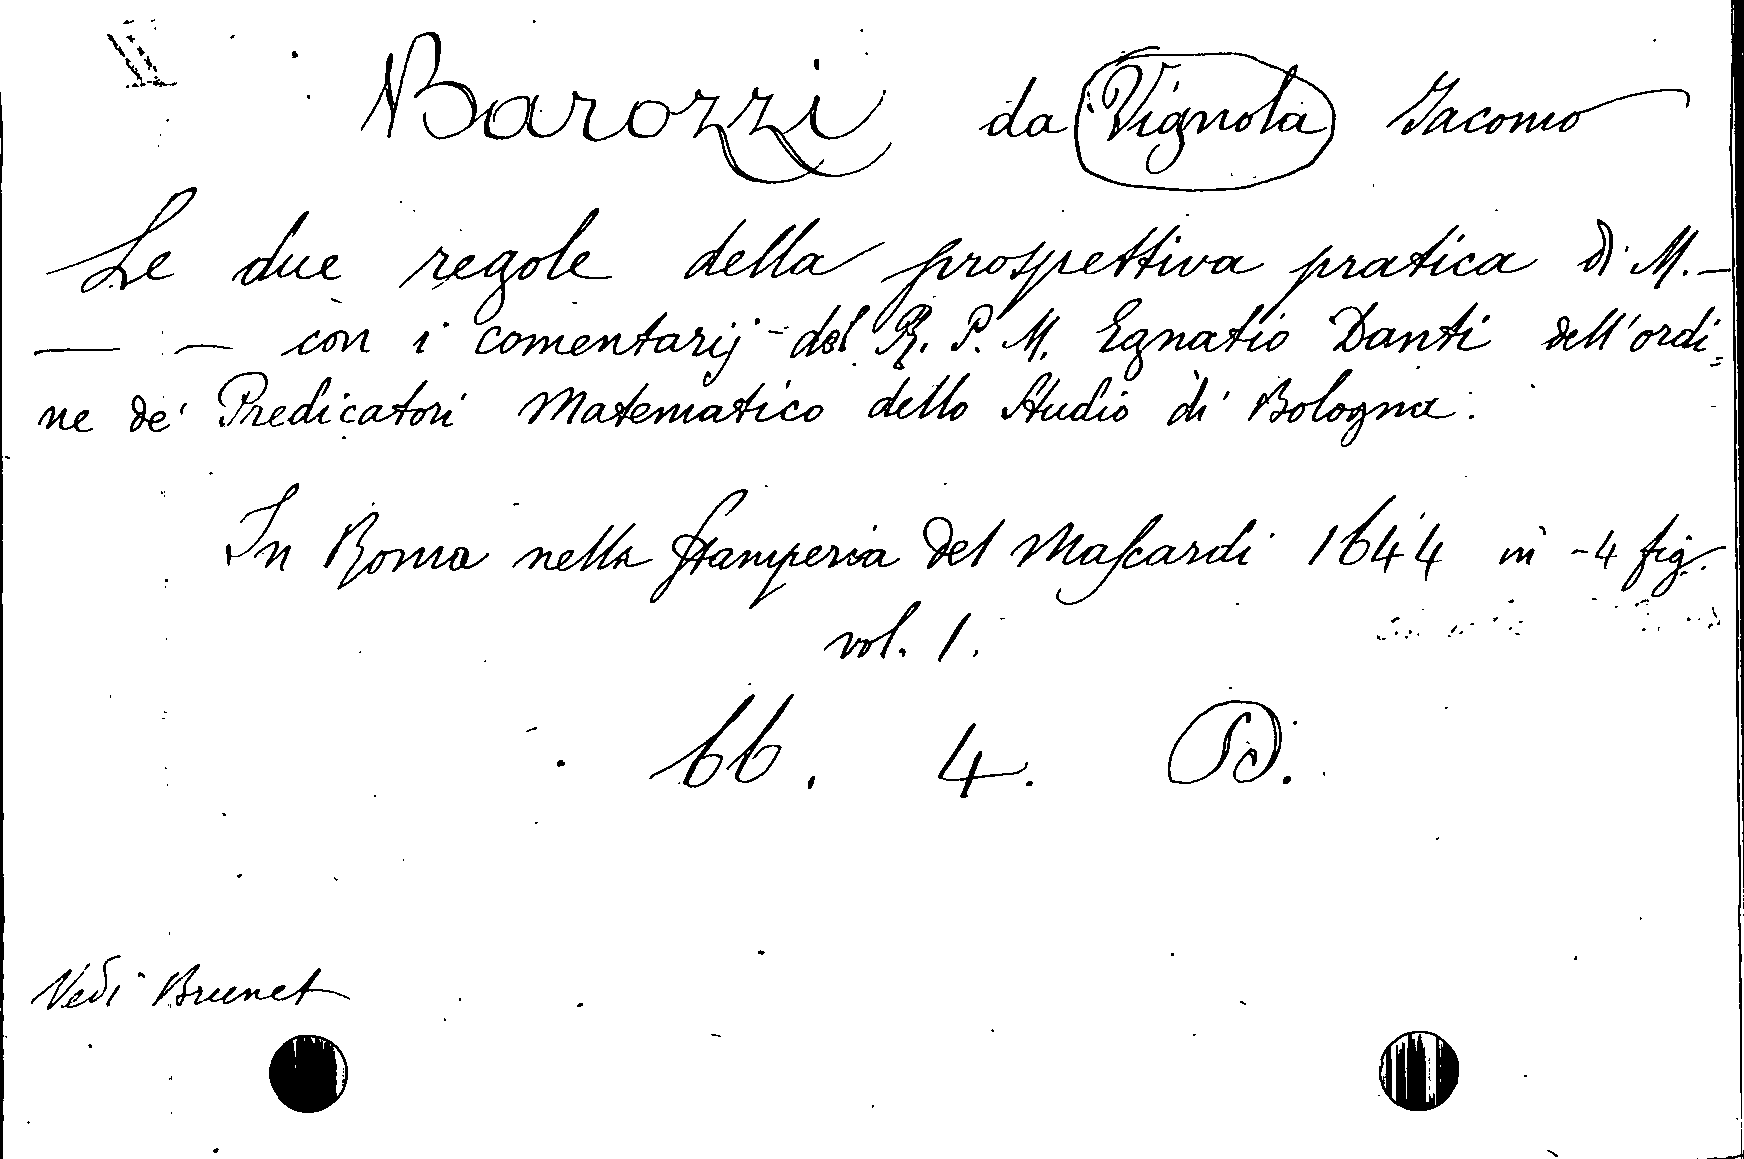 Barozzi da Vignola Iacomo
Le due regole della prospettiva pratica di M. —
— — con i comentarij del R. P. M. Egnatio Danti dell'ordi=
ne de' Predicatori Matematico dello Studio di Bologna.
In Roma nella stamperia del Mascardi 1644 in -4 fig.
vol. 1.
66. 4.
Vedi Brunet